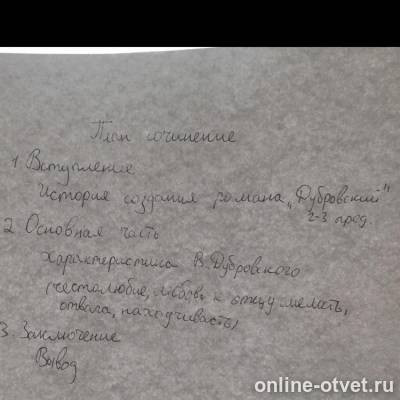 План сочинение
1. Вступление
История создания романа „Дубровский"
2-3 пред.
2. Основная часть
Характеристика В. Дубровского
(честолюбие, любовь к отцу,
отвага, находчивость)
3. Заключение
Вывод
online-otvet.ru